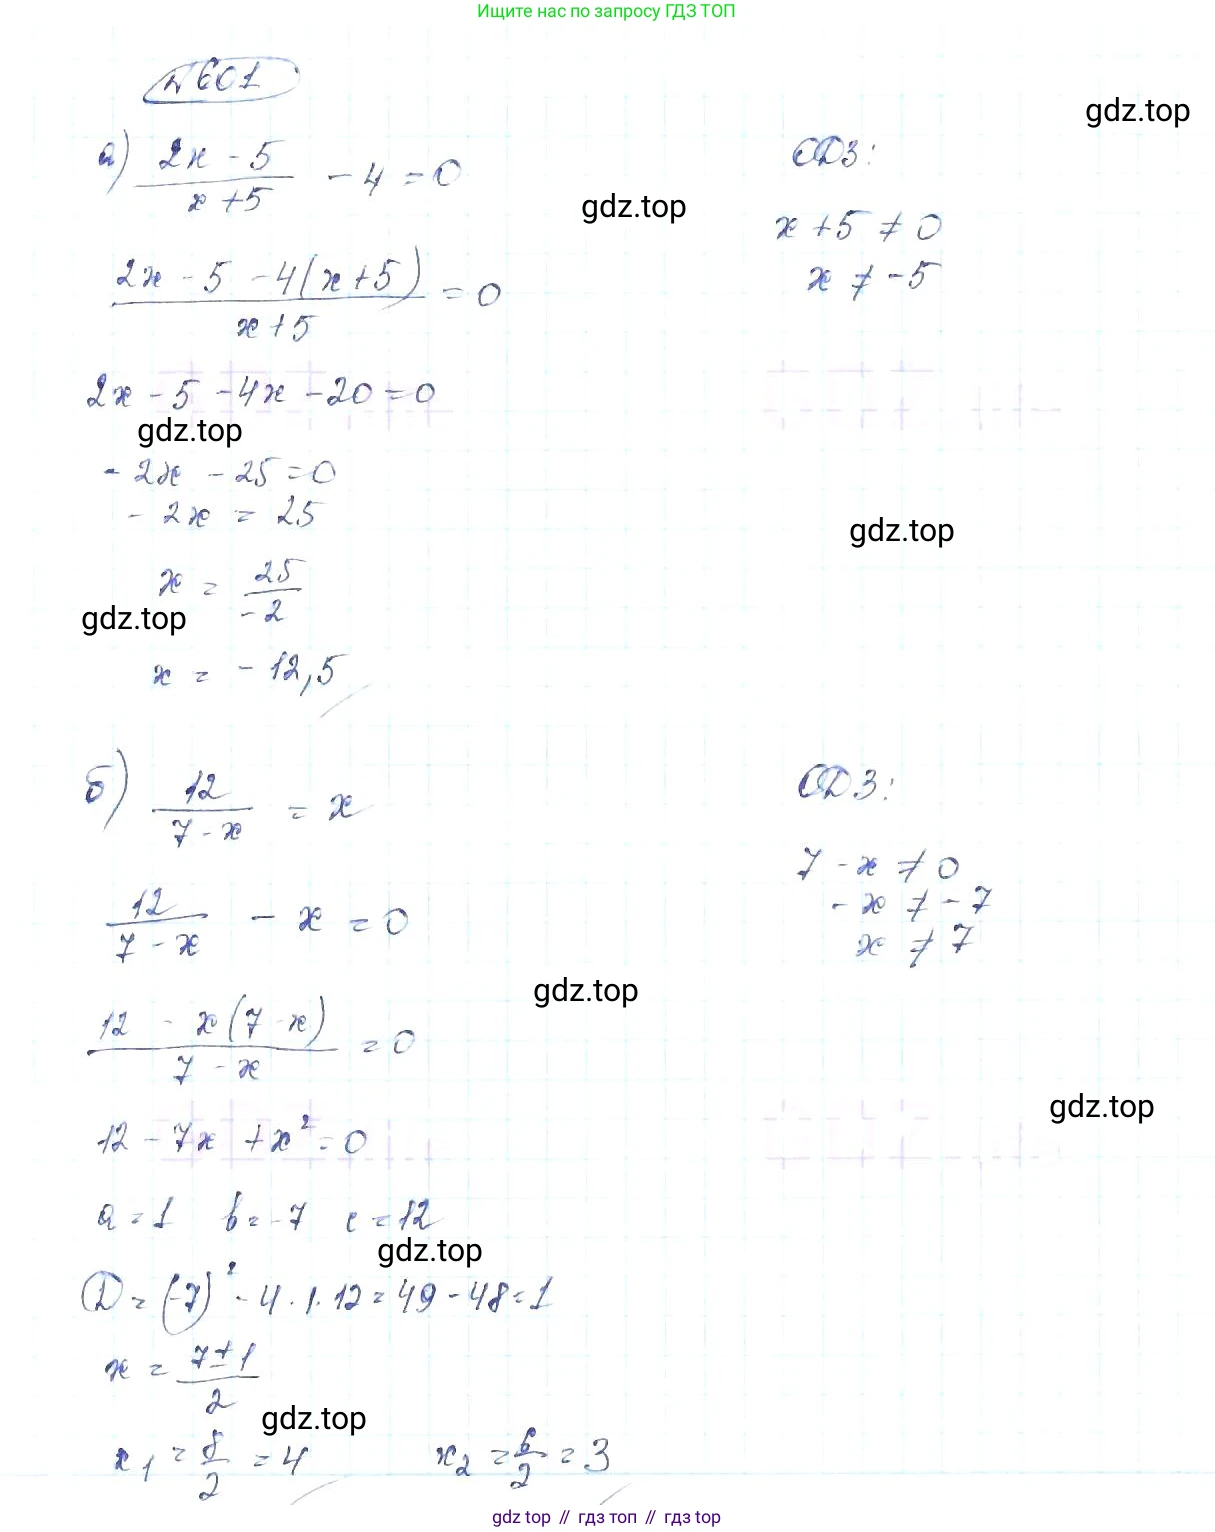 Ищите нас по запросу ГДЗ ТОП
№ 601
gdz.top
а) (2x - 5)/(x + 5) - 4 = 0
ОДЗ:
gdz.top
x + 5 ≠ 0
(2x - 5 - 4(x + 5))/(x + 5) = 0
x ≠ -5
2x - 5 - 4x - 20 = 0
gdz.top
- 2x - 25 = 0
- 2x = 25
gdz.top
x = 25/-2
gdz.top
x = - 12,5
б) 12/(7 - x) = x
ОДЗ:
7 - x ≠ 0
12/(7 - x) - x = 0
- x ≠ - 7
x ≠ 7
gdz.top
(12 - x(7 - x))/(7 - x) = 0
gdz.top
12 - 7x + x² = 0
a = 1 b = -7 c = 12
gdz.top
D = (-7)² - 4 · 1 · 12 = 49 - 48 = 1
x = (7 ± 1)/2
gdz.top
x₁ = 8/2 = 4 x₂ = 6/2 = 3
gdz top // гдз топ // gdz top